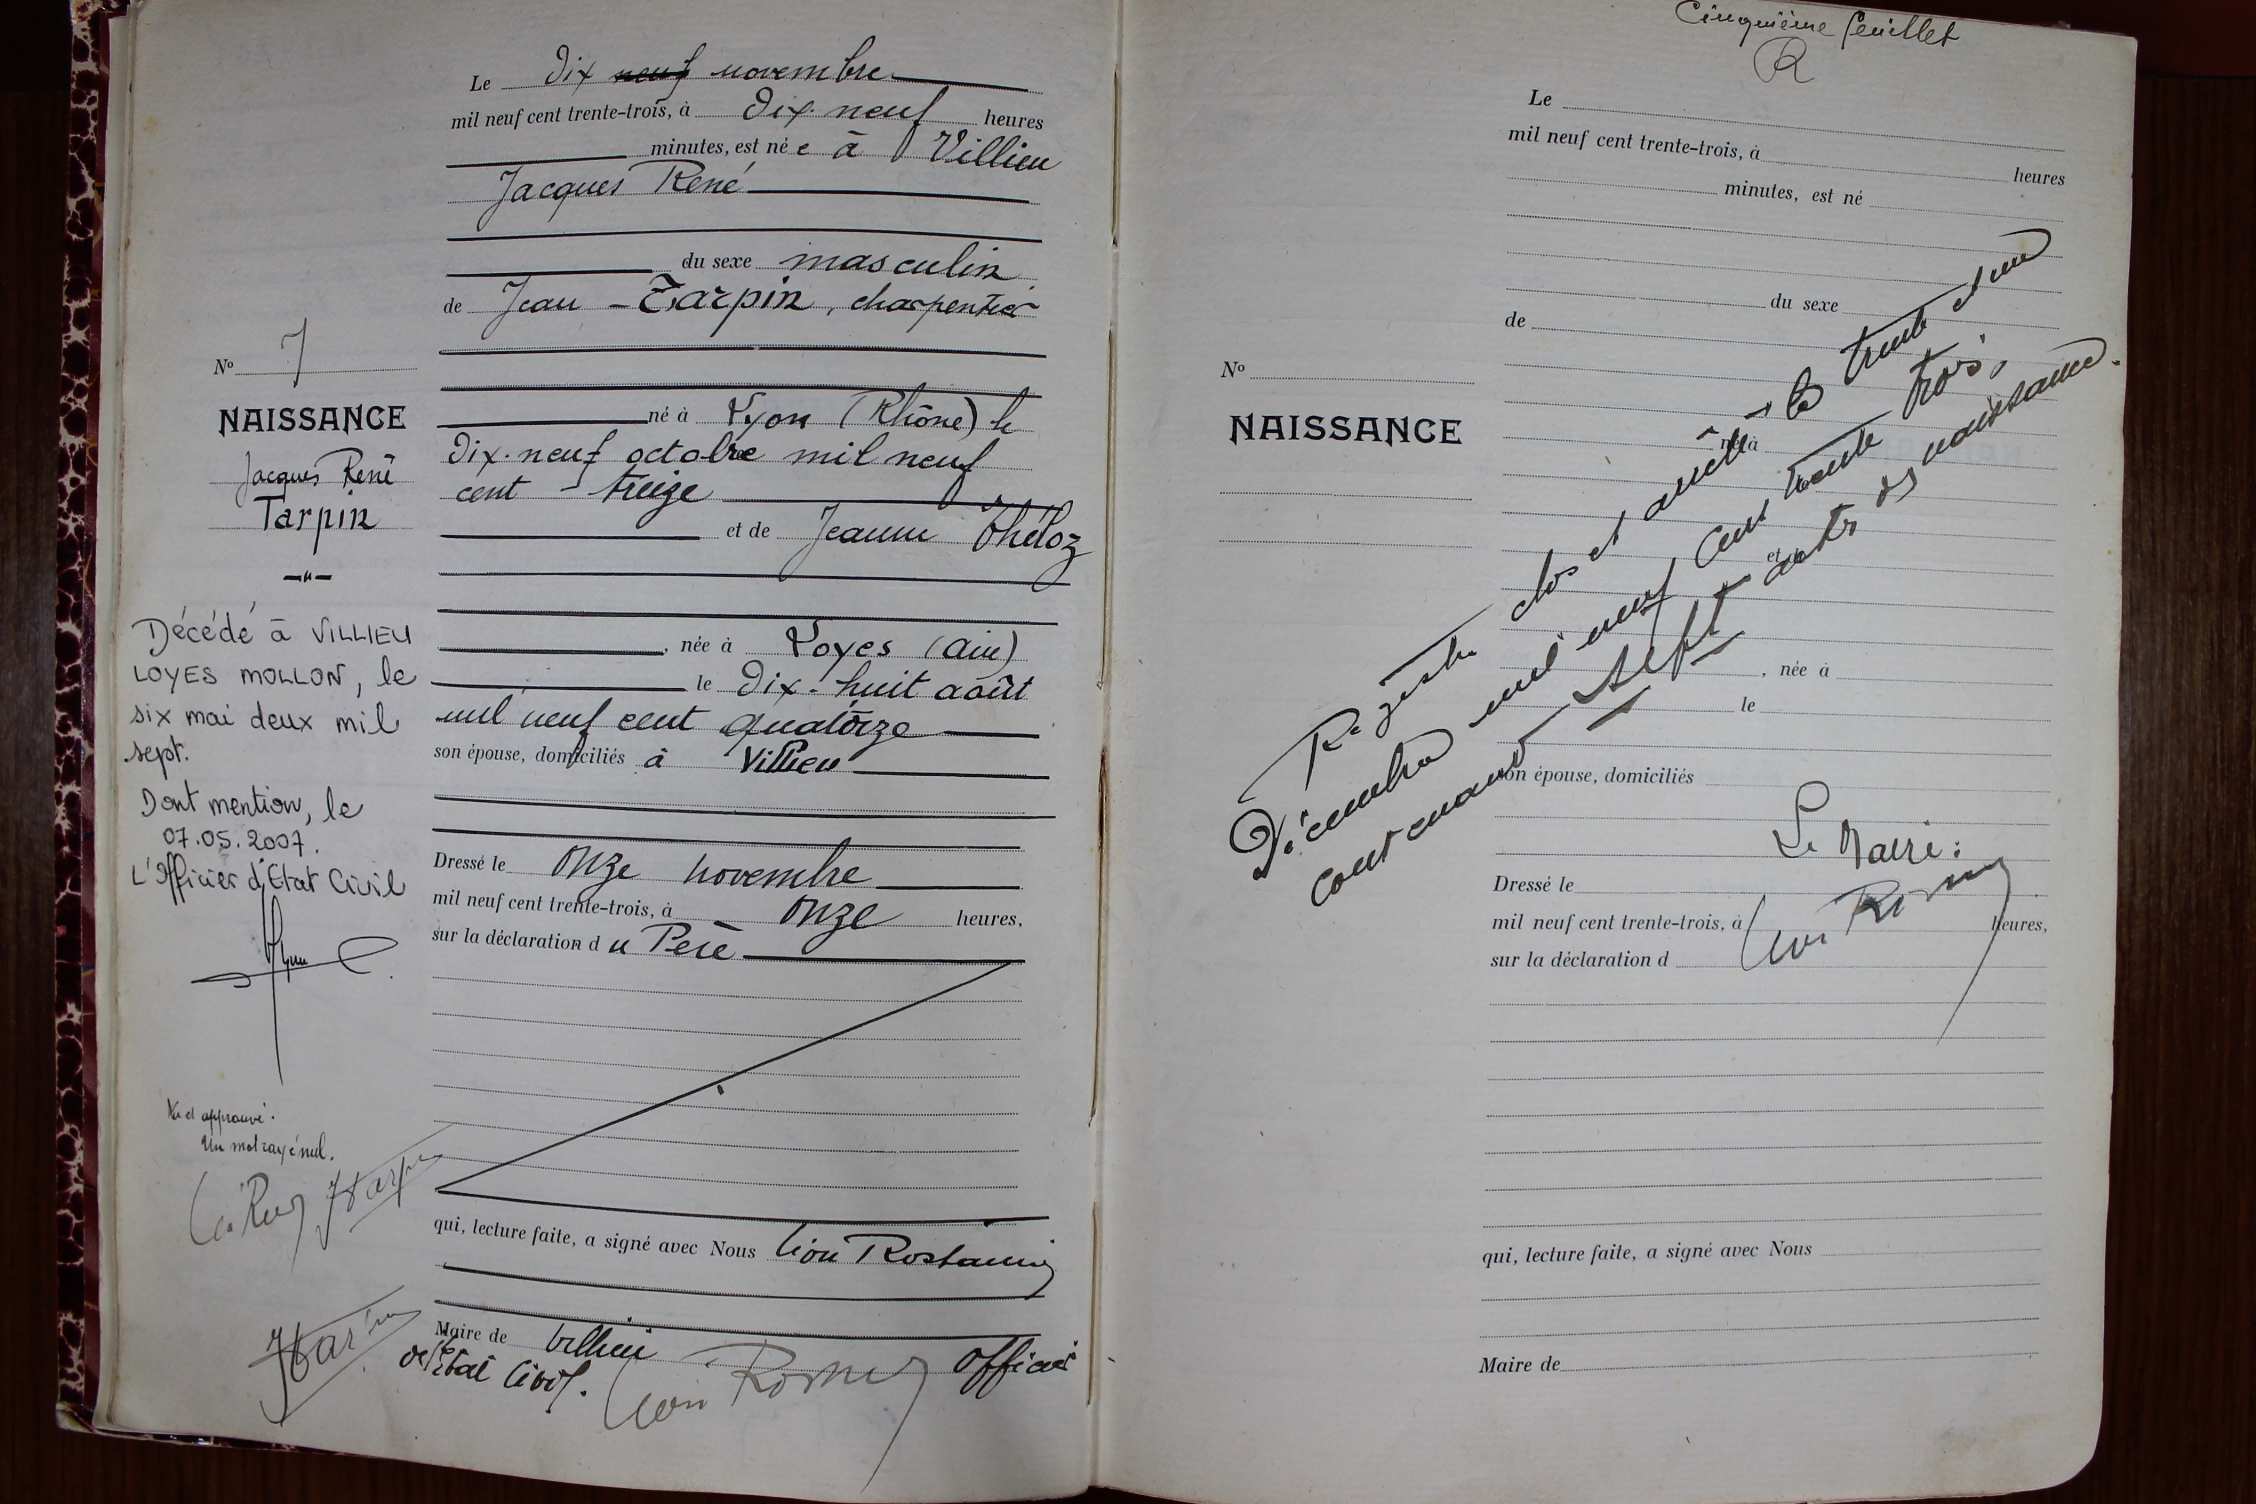 Le dix neuf novembre
mil neuf cent trente-trois, à dix-neuf heures
minutes, est né e à Villieu
Jacques René
du sexe masculin
de Jean Tarpin, charpentier
né à Lyon (Rhône) le
dix-neuf octobre mil neuf
cent treize
et de Jeanne Théloz
, née à Loyes (Ain)
le dix-huit août
mil neuf cent quatorze
son épouse, domiciliés à Villieu
Dressé le onze novembre
mil neuf cent trente-trois, à onze heures,
sur la déclaration d u Père
qui, lecture faite, a signé avec Nous Léon Rostaing
Maire de Villieu Officier
de l'Etat Civil.
No 7
NAISSANCE
Jacques René
Tarpin
Décédé à VILLIEU
LOYES MOLLON, le
six mai deux mil
sept.
Dont mention, le
07.05.2007.
L'Officier d'Etat Civil
Vu et approuvé.
Un mot rayé nul.
Cinquième feuillet
R
Le
mil neuf cent trente-trois, à heures
minutes, est né
du sexe
de
No
NAISSANCE
né à
et
, née à
le
son épouse, domiciliés
Dressé le
mil neuf cent trente-trois, à heures,
sur la déclaration d
qui, lecture faite, a signé avec Nous
Maire de
Registre clos et arrêté le trente et un
Décembre mil neuf cent trente trois,
contenant sept actes de naissance.
Le Maire :